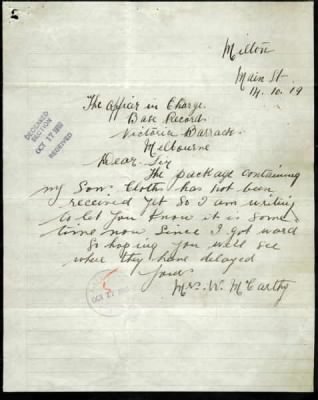 Milton
Main St
14.10.19
The Officer in Charge.
Base Records
Victoria Barracks.
Melbourne
Dear Sir
The package containing
my Son. Cloths has not been
received yet So I am writing
to let you know it is some
time now since I got word
So hoping you will see
where they have delayed
Yours
Mrs. W. McCarthy
DECEASED
SECTION
OCT 17 1919
RECEIVED
OCT 27